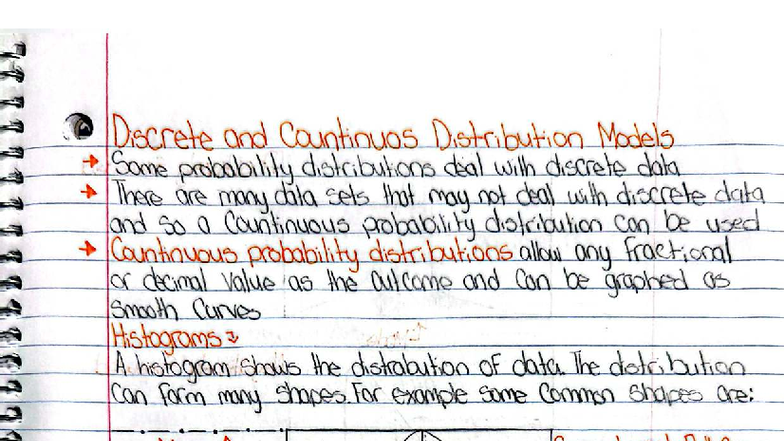 Discrete and Countinuos Distribution Models
→ Some probability distributions deal with discrete data
→ There are many data sets that may not deal with discrete data
and so a Countinuous probability distribution can be used
→ Countinuous probability distributions allow any fractional
or decimal value as the outcome and can be graphed as
smooth curves
Histograms
A histogram shows the distrabution of data. The distribution
can form many shapes. For example some common shapes are: